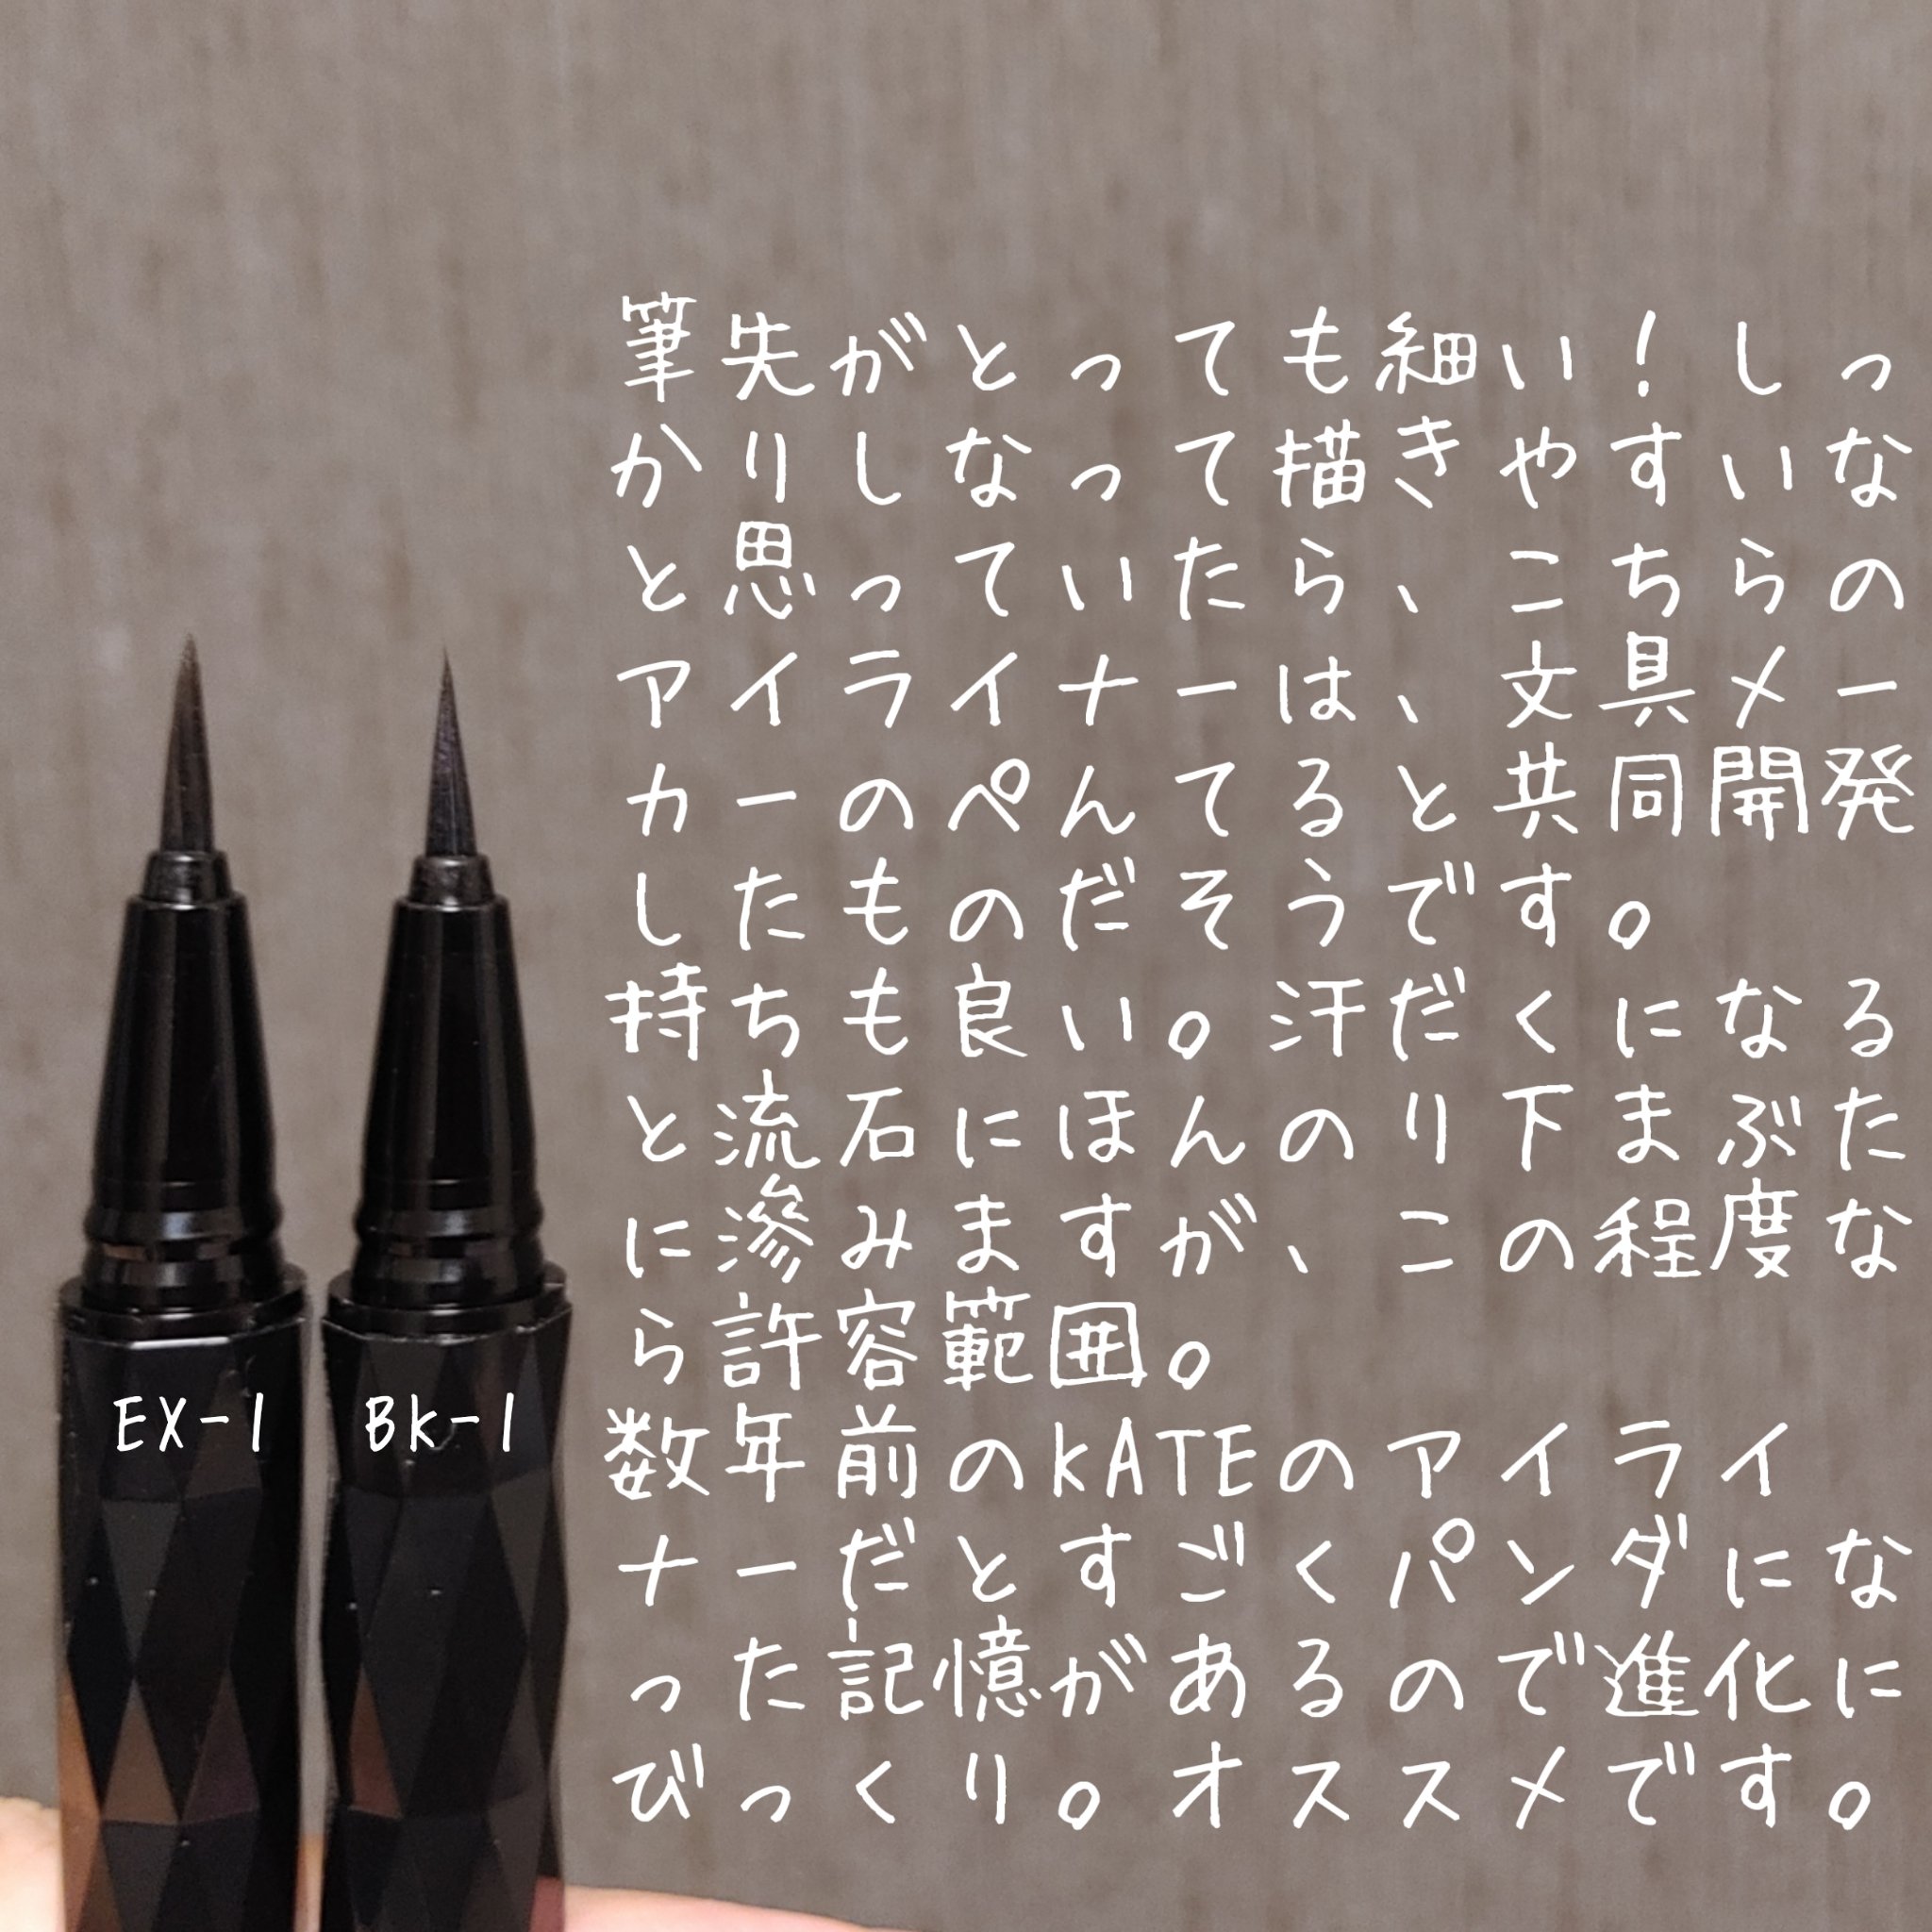 筆先がとっても細い！しっ
かりしなって描きやすいな
と思っていたら、こちらの
アイライナーは、文具メー
カーのぺんてると共同開発
したものだそうです。
持ちも良い。汗だくになる
と流石にほんのり下まぶた
に滲みますが、この程度な
ら許容範囲。
数年前のKATEのアイライ
ナーだとすごくパンダにな
った記憶があるので進化に
びっくり。オススメです。
EX-1
BK-1